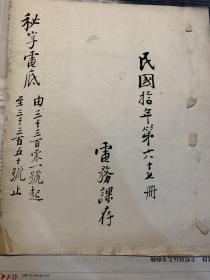 民國拾年第六十七冊
電務課存
秘字電底
由三千三百零一號起
至三千三百五十號止